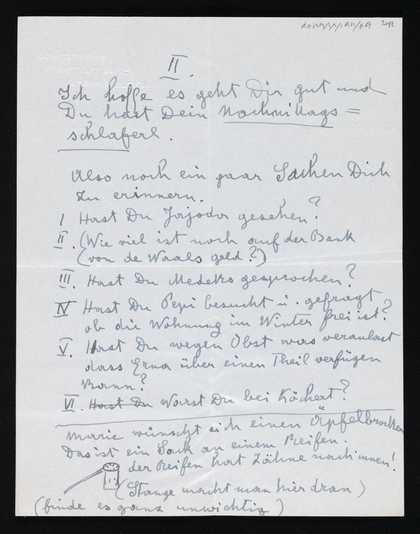 II.
Ich hoffe es geht Dir gut und
Du hast Dein Nachmittags=
schlaferl.
Also noch ein paar Sachen Dich
zu erinnern.
I Hast Du gesehen?
II. (Wie viel ist noch auf der Bank
(von de Waals geld?)
III. Hast Du gesprochen?
IV Hast Du Pepi besucht u. gefragt
ob die Wohnung im Winter frei ist?
V. Hast Du wegen Obst was veranlast
dass Erna über einen Theil verfügen
kann?
VI. Hast Du Warst Du bei Köchert?
Marie wünscht sich einen Äpfelbrocker
Das ist ein Sack an einem Reifen.
der Reifen hat Zähne nach innen!
(Stange macht man hier dran)
(finde es ganz unwichtig)